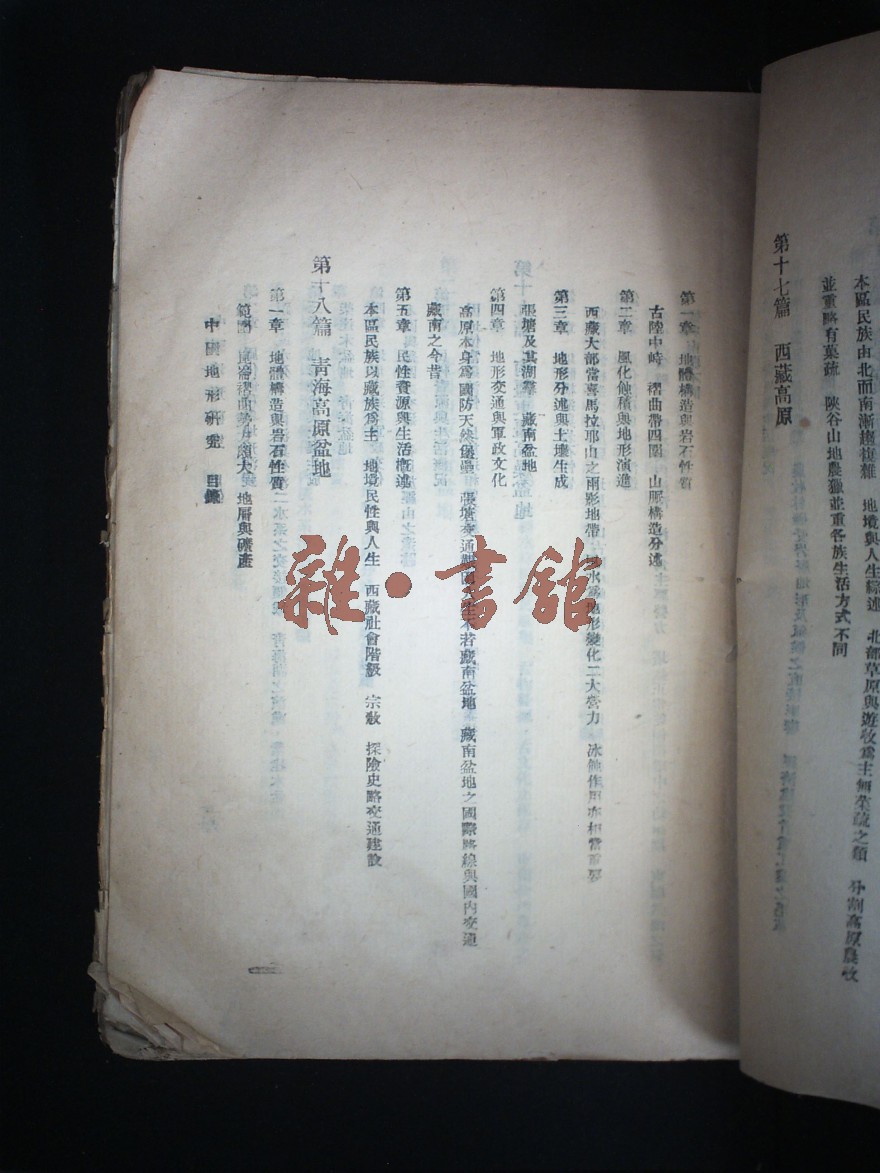 本區民族由北而南漸趨複雜　地境與人生綜述　北部草原與遊牧爲主無菜蔬之類　分割高原農牧
並重略有菜蔬　陝谷山地農獵並重各族生活方式不同
第十七篇　西藏高原
第一章　地體構造與岩石性質
古陸中峙　褶曲帶四圍　山脈構造分述
第二章　風化蝕積與地形演進
西藏大部當喜馬拉耶山之雨影地帶　水爲地形變化二大營力　冰蝕作用亦相當重要
第三章　地形分述與土壤生成
張塘及其湖羣　藏南盆地
第四章　地形交通與軍政文化
高原本身爲國防天然堡壘　張塘交通　若藏南盆地　藏南盆地之國際路線與國內交通
藏南之今昔
第五章　民性資源與生活概述
本區民族以藏族爲主　地境民性與人生　西藏社會階級　宗教　探險史略交通建設
第十八篇　青海高原盆地
第一章　地體構造與岩石性質
範圍　南崙褶曲勢力擴大　地層與礦產
中國地形研究　目錄
雜·書館